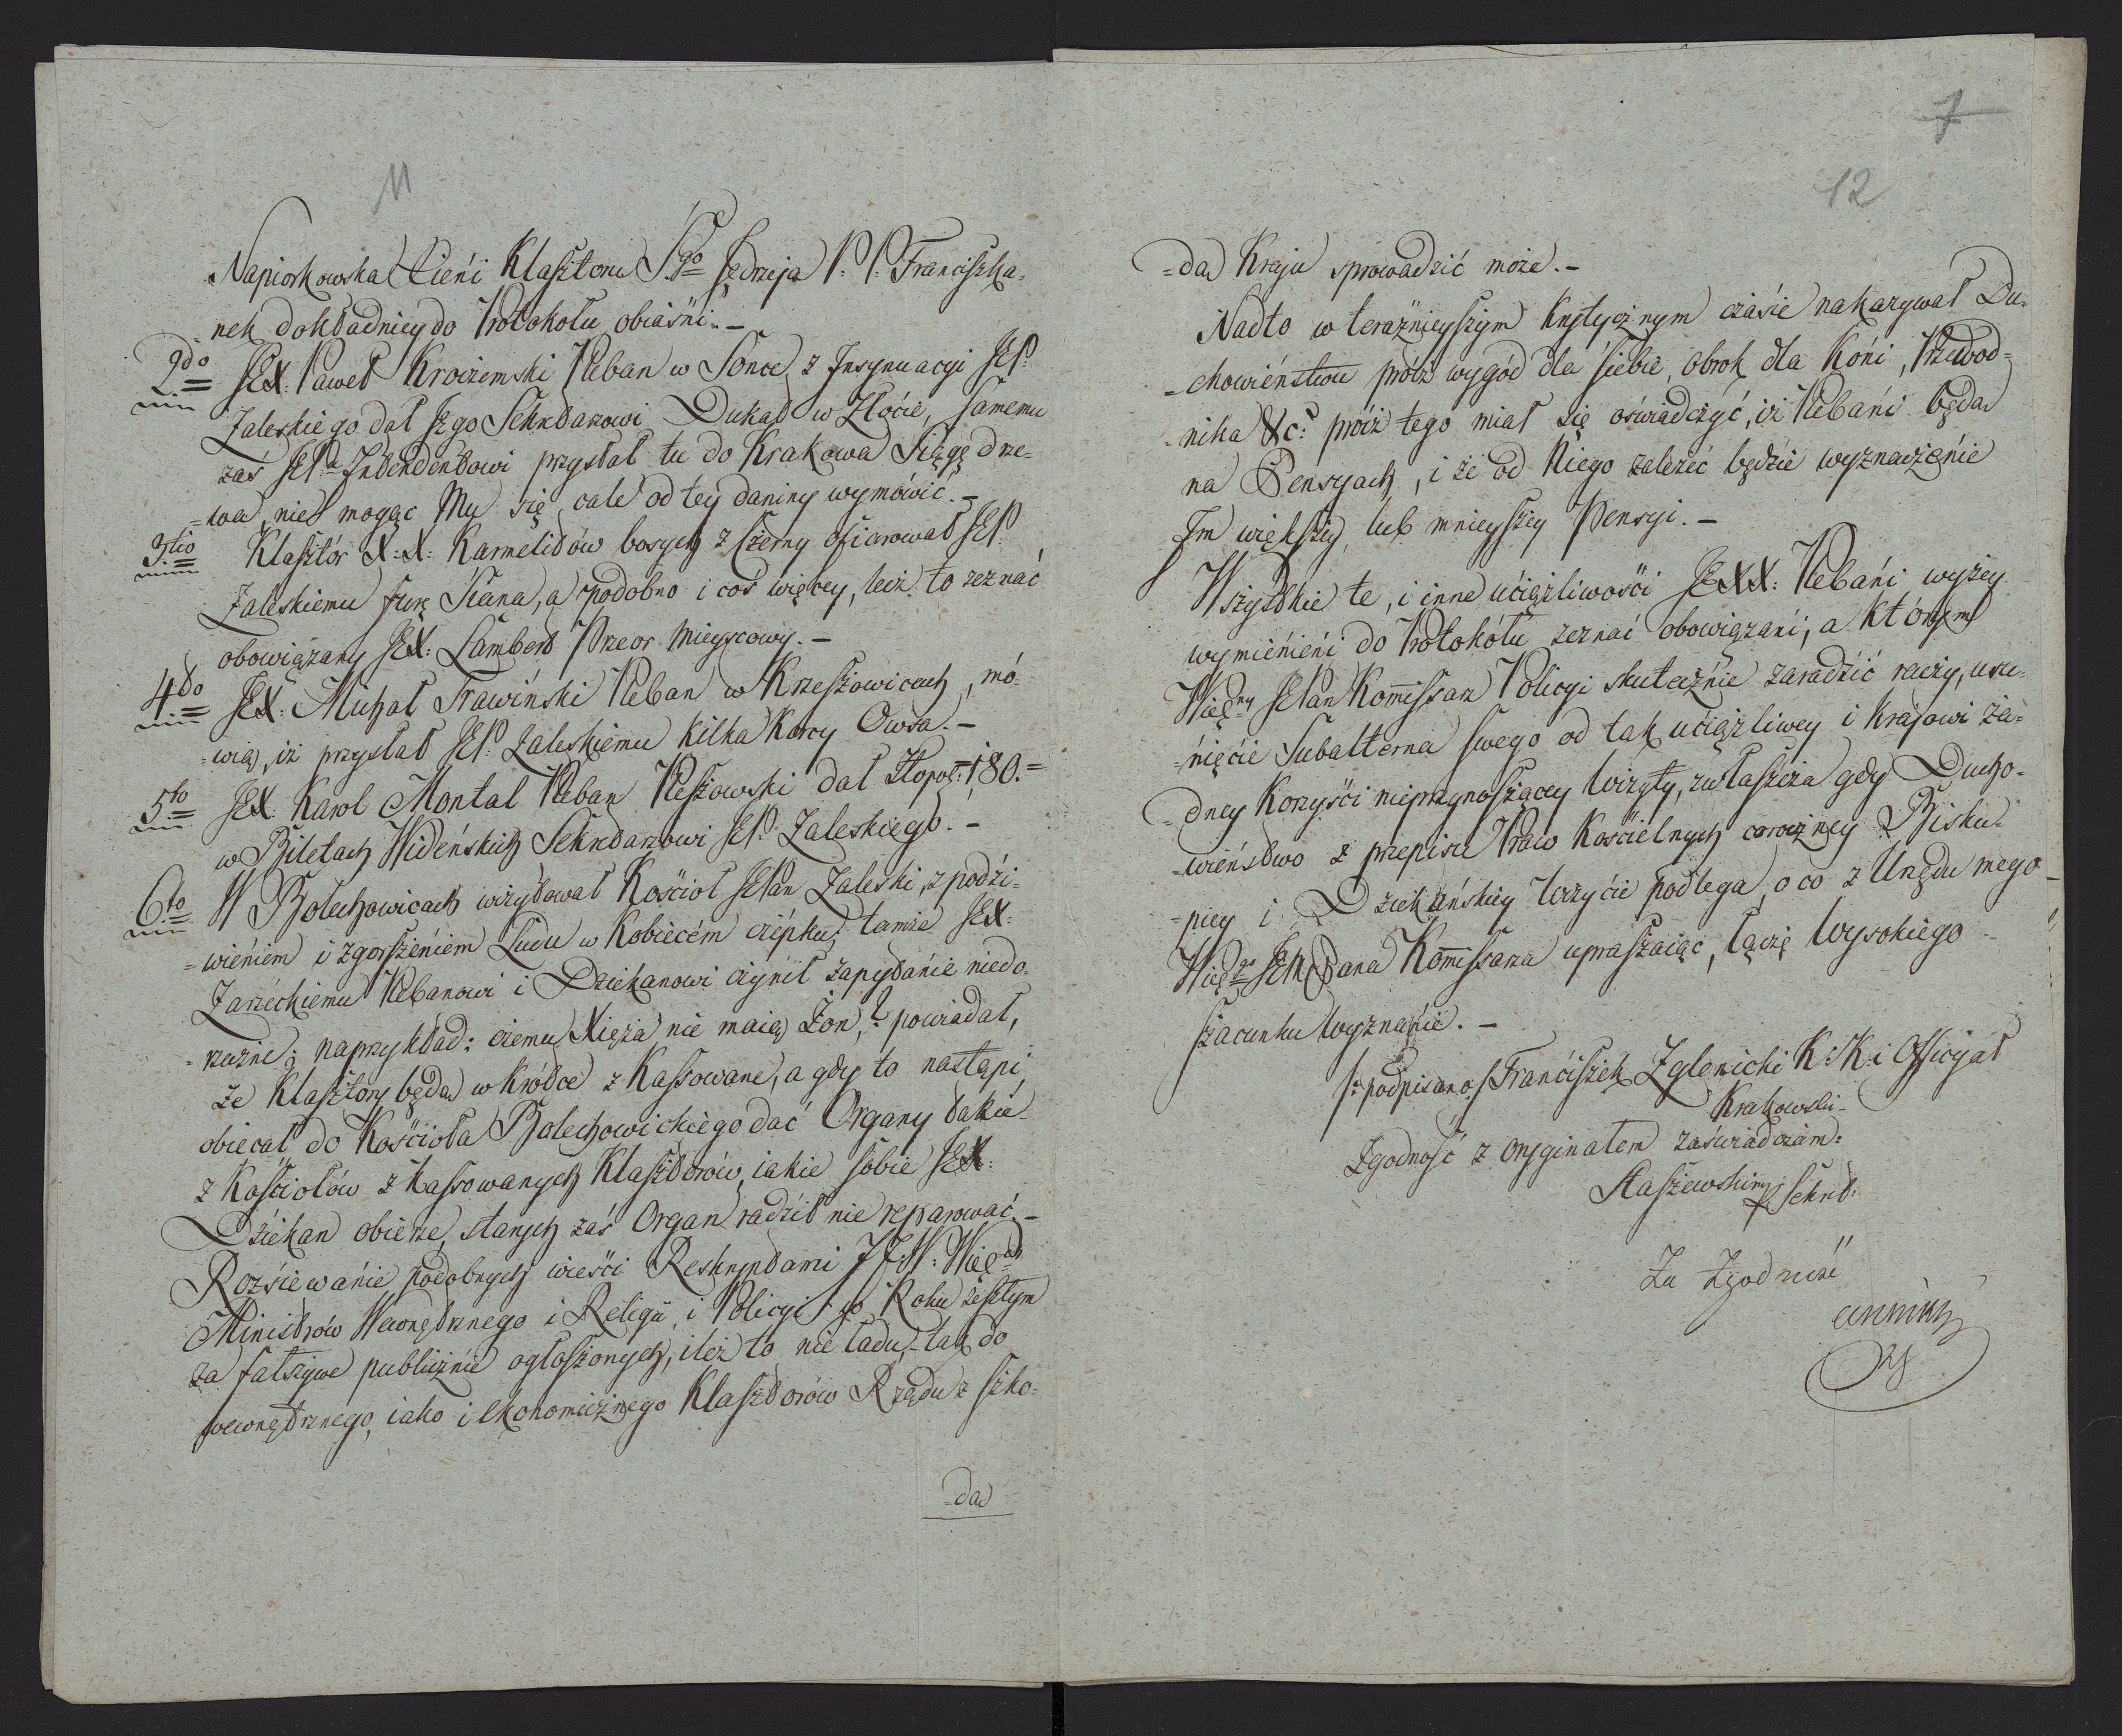 11
Napiorkowska Xieni Klasztoru Sgo Jędrzeja P. P. Franciszka-
-nek dokładniey do Protokołu obiaśni. -
2do JEX: Paweł Kroizemski Pleban w Sonce z Insynuacyi JEP.
Zaleskiego dał Jego Sekretarzowi Dukat w Złocie, samemu
zaś JEPu Intendentowi przysłał tu do Krakowa Siągę drze-
-wa, nie mogąc Mu się cale od tey daniny wymówić. -
3tio Klasztór X: X: Karmelitów bosych z Czerny ofiarował JEP.
Zaleskiemu furę Siana, a podobno i coś więcey, lecz to zeznać
obowiązany JEX: Lambert Przeor Mieyscowy. -
4to JEX: Michał Trawiński Pleban w Krzeszowicach, mó-
-wią, iż przysłał JEP. Zaleskiemu kilka Korcy Owsa. -
5to JEX: Karol Montal Pleban Pleszowski dał Złopol: 180. =
w Biletach Wideńskich Sekretarzowi JEP. Zaleskiego. -
6to W Bolechowicach wizytował Kościoł JEPan Zaleski, z podzi-
-wieniem i zgorszeniem Ludu w Kobiecém czépku, tamże JEX:
Zarzeckiemu Plebanowi i Dziekanowi czynił zapytanie niedo-
-rzeczne; naprzykład: czemu Xięża nie maią Żon,? powiadał,
że Klasztory będą wkrótce z Kassowane, a gdy to nastąpi
obiecał do Kościoła Bolechowickiego dać Organy takie
z Kościołów z kassowanych Klasztorów, iakie sobie JEX:
Dziekan obierze, starych zaś Organ radził nie reparować. -
Rozsiewanie podobnych wieści Reskryptami JJW: Więch
Ministrów Wewnętrznego i Religii, i Policyi Roku zeszłym
za fałszywe publicznie ogłoszonych, ileż to nie ładu, - tak do
wewnętrznego, iako i ekonomicznego Klasztorów Rządu z szko-
-da
7
12
-dą Kraju sprowadzić może. -
Nadto w teraźnieyszym Krytycznym czasie nakazywał Du-
-chowieństwu prócz wygód dla siebie, obrok dla Koni, Przewod-
-nika &c: prócz tego miał się oświadczyć, iż Plebani będą
na Pensyach, i że od Niego zależeć będzie wyznaczenie
Im większey, lub mnieyszey Pensyi. -
Wszystkie te, i inne uciążliwości JEXX: Plebani wyżey
wymienieni do Protokółu zeznać obowiązani; a którym
Więny JEPan Kommissarz Policyi skutecznie zaradzić raczy, usu-
-nięcie Subalterna swego od tak uciążliwey i Krajowi ża-
-dney Korzyści nieprzynoszącey Wizyty, zwłaszcza gdy Ducho-
-wieństwo z przepisu Praw Kościelnych corocznęy Bisku-
-piey i Dziekańskiey Wizycie podlega, o co z Urzędu mego
Więgo JEMPana Kommissarza upraszaiąc, łączę Wysokiego
szacunku wyznanie. -
/: podpisano / Franciszek Zglenicki K: K: i Officyał
Krakowski -
Zgodność z Oryginałem zaświadczam:
Staszewski Sekret:
Za Zgodność